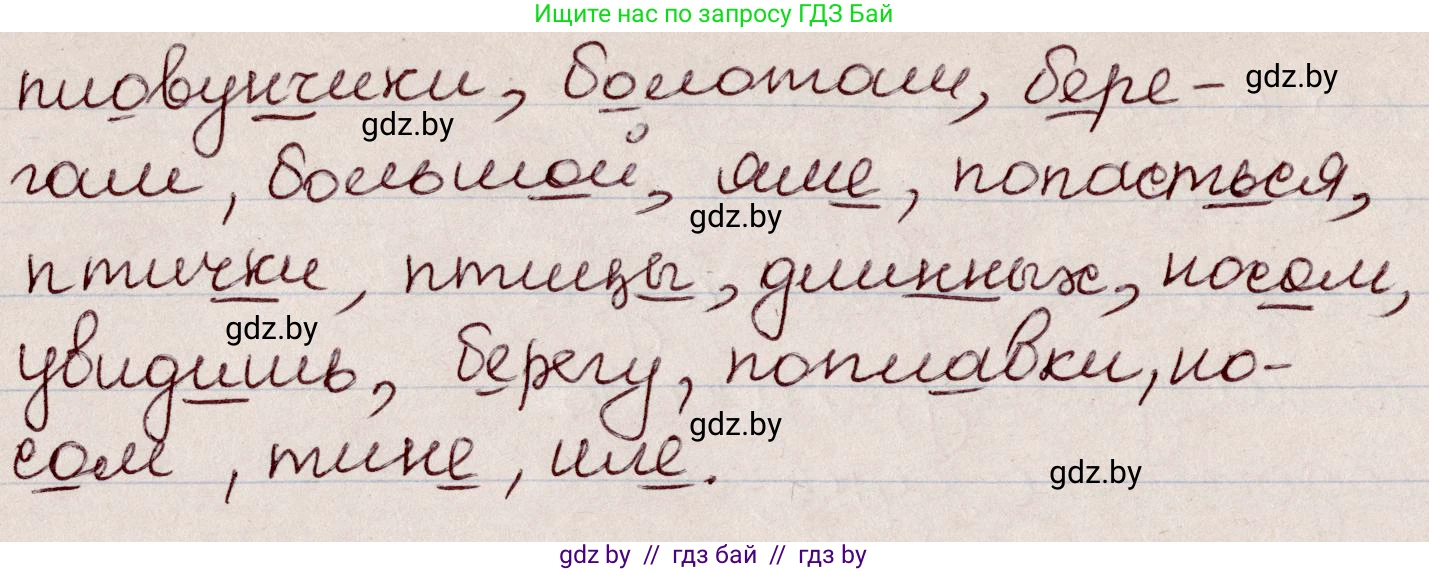 Ищите нас по запросу ГДЗ Бай
пловунчики, болотам, бере-
gdz.by
gdz.by
гам, большой, яме, попасться,
gdz.by
птички, птицы, длинных, носом,
gdz.by
увидишь, берегу, поплавки, но-
gdz.by
сом, тине, иле.
gdz.by
gdz by // гдз бай // гдз by